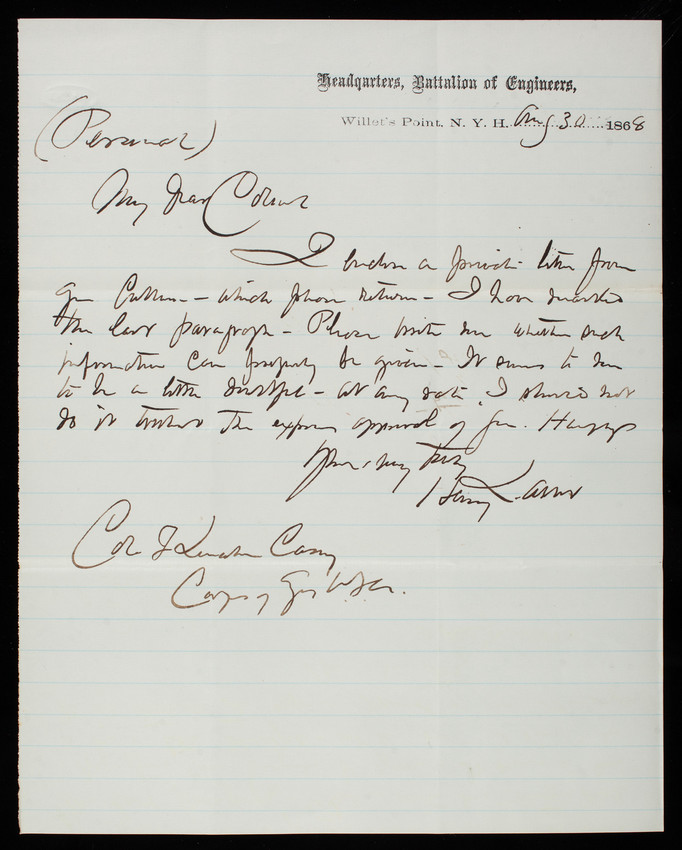 Headqarters, Battalion of Engineers,
Willet's Point, N. Y. H. Aug 30 1868
(Personal)
My Dear Colonel
I enclose a private letter from
Gen Cullum - which please return - I have marked
the last paragraph - Please write me whether such
information can properly be given - It seems to me
to be a little doubtful - at any rate, I should not
do it without the express approval of Gen. Humphreys
Yours very truly
Henry L. Abbot
Col. T Lincoln Casey
Corps of Engrs U.S.A.